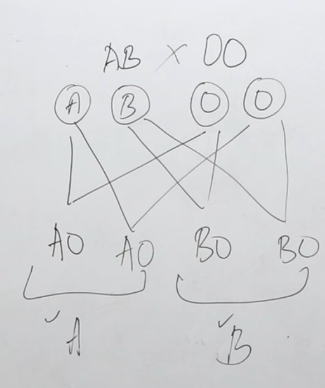 AB × OO
A B O O
AO AO BO BO
A B